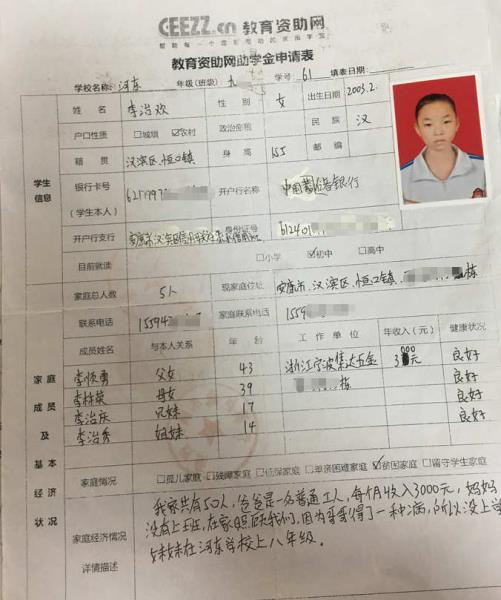 CEEZZ.cn 教育资助网
教育资助网助学金申请表
学校名称: 河东 年级(班级): 九 学号: 61 填表日期:
学生信息
姓名 李治欢 性别 女 出生日期 2003.2.
户口性质 □城镇 ☑农村 政治面貌 民族 汉
籍贯 汉滨区、恒口镇 身高 155 邮编
银行卡号(学生本人) 621799 开户行名称 中国 银行
开户行支行 安康市汉滨区 身份证号 612401
目前就读 □小学 ☑初中 □高中
家庭成员及基本经济状况
家庭总人数 5人 现家庭住址 安康市、汉滨区、恒口镇、 栋
联系电话 15594 家庭联系电话 1559
成员姓名 与本人关系 年龄 工作单位 年收入(元) 健康状况
李顺勇 父女 43 浙江宁波集达五金 元 良好
李林英 母女 39 栋 良好
李治庆 兄妹 17 良好
李治秀 姐妹 14 良好
家庭情况 □孤儿家庭 □残障家庭 □低保家庭 □单亲困难家庭 ☑贫困家庭 □留守学生家庭
家庭经济情况详情描述
我家共有50人,爸爸是一名普通工人,每个月收入3000元,妈妈
没有上班,在家照顾我们,因为哥哥得了一种病,所以没上学
妹妹在河东学校上八年级。